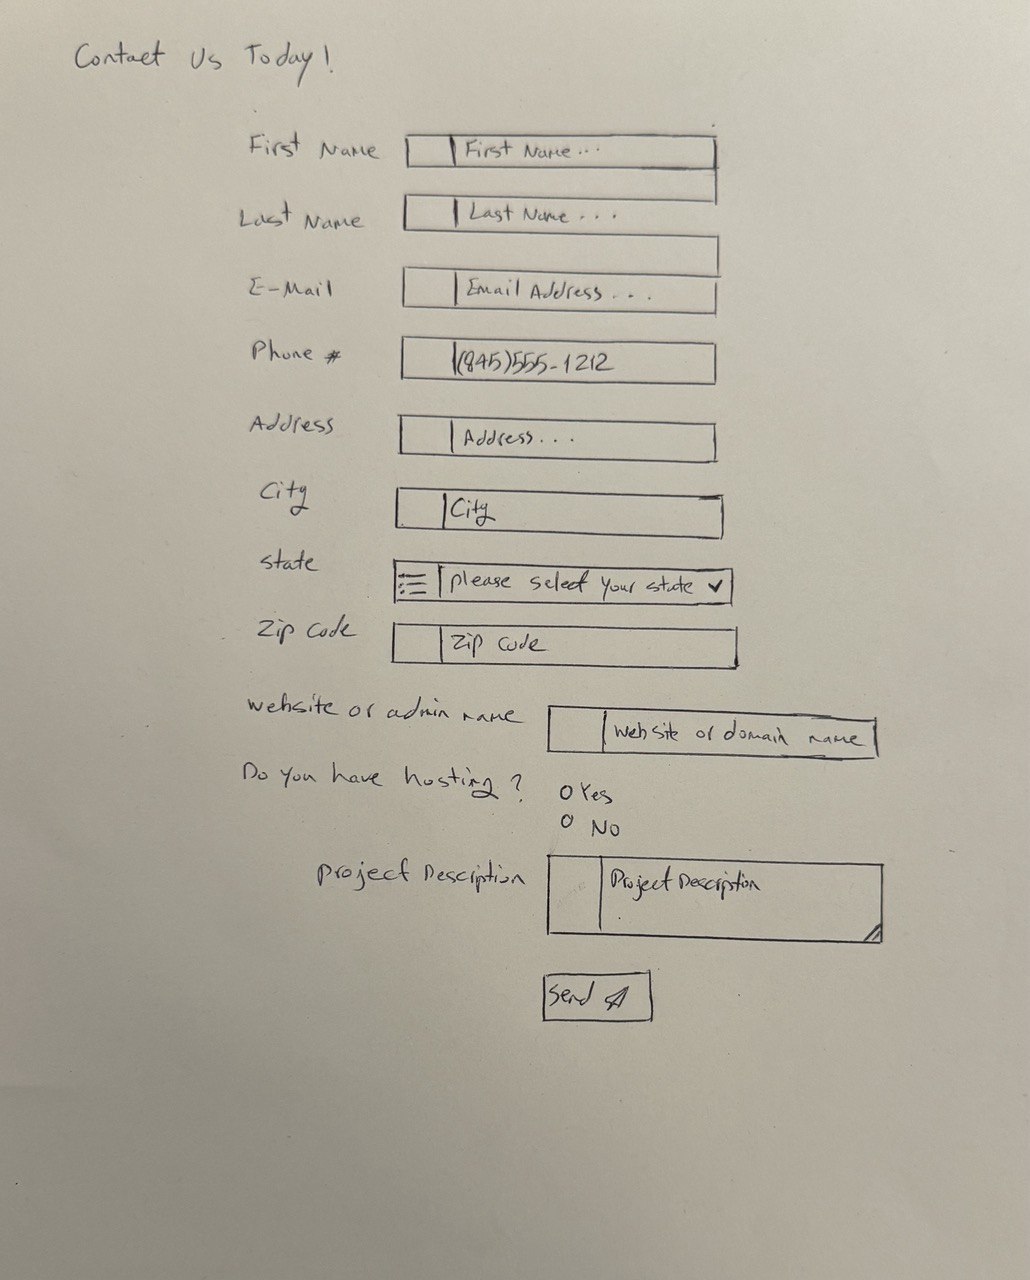 Contact Us Today!
First Name
First Name...
Last Name
Last Name...
E-Mail
Email Address...
Phone #
(845)555-1212
Address
Address...
City
City
state
please select your state
Zip Code
Zip Code
website or admin name
website or domain name
Do you have hosting?
Yes
No
Project Description
Project Description
Send